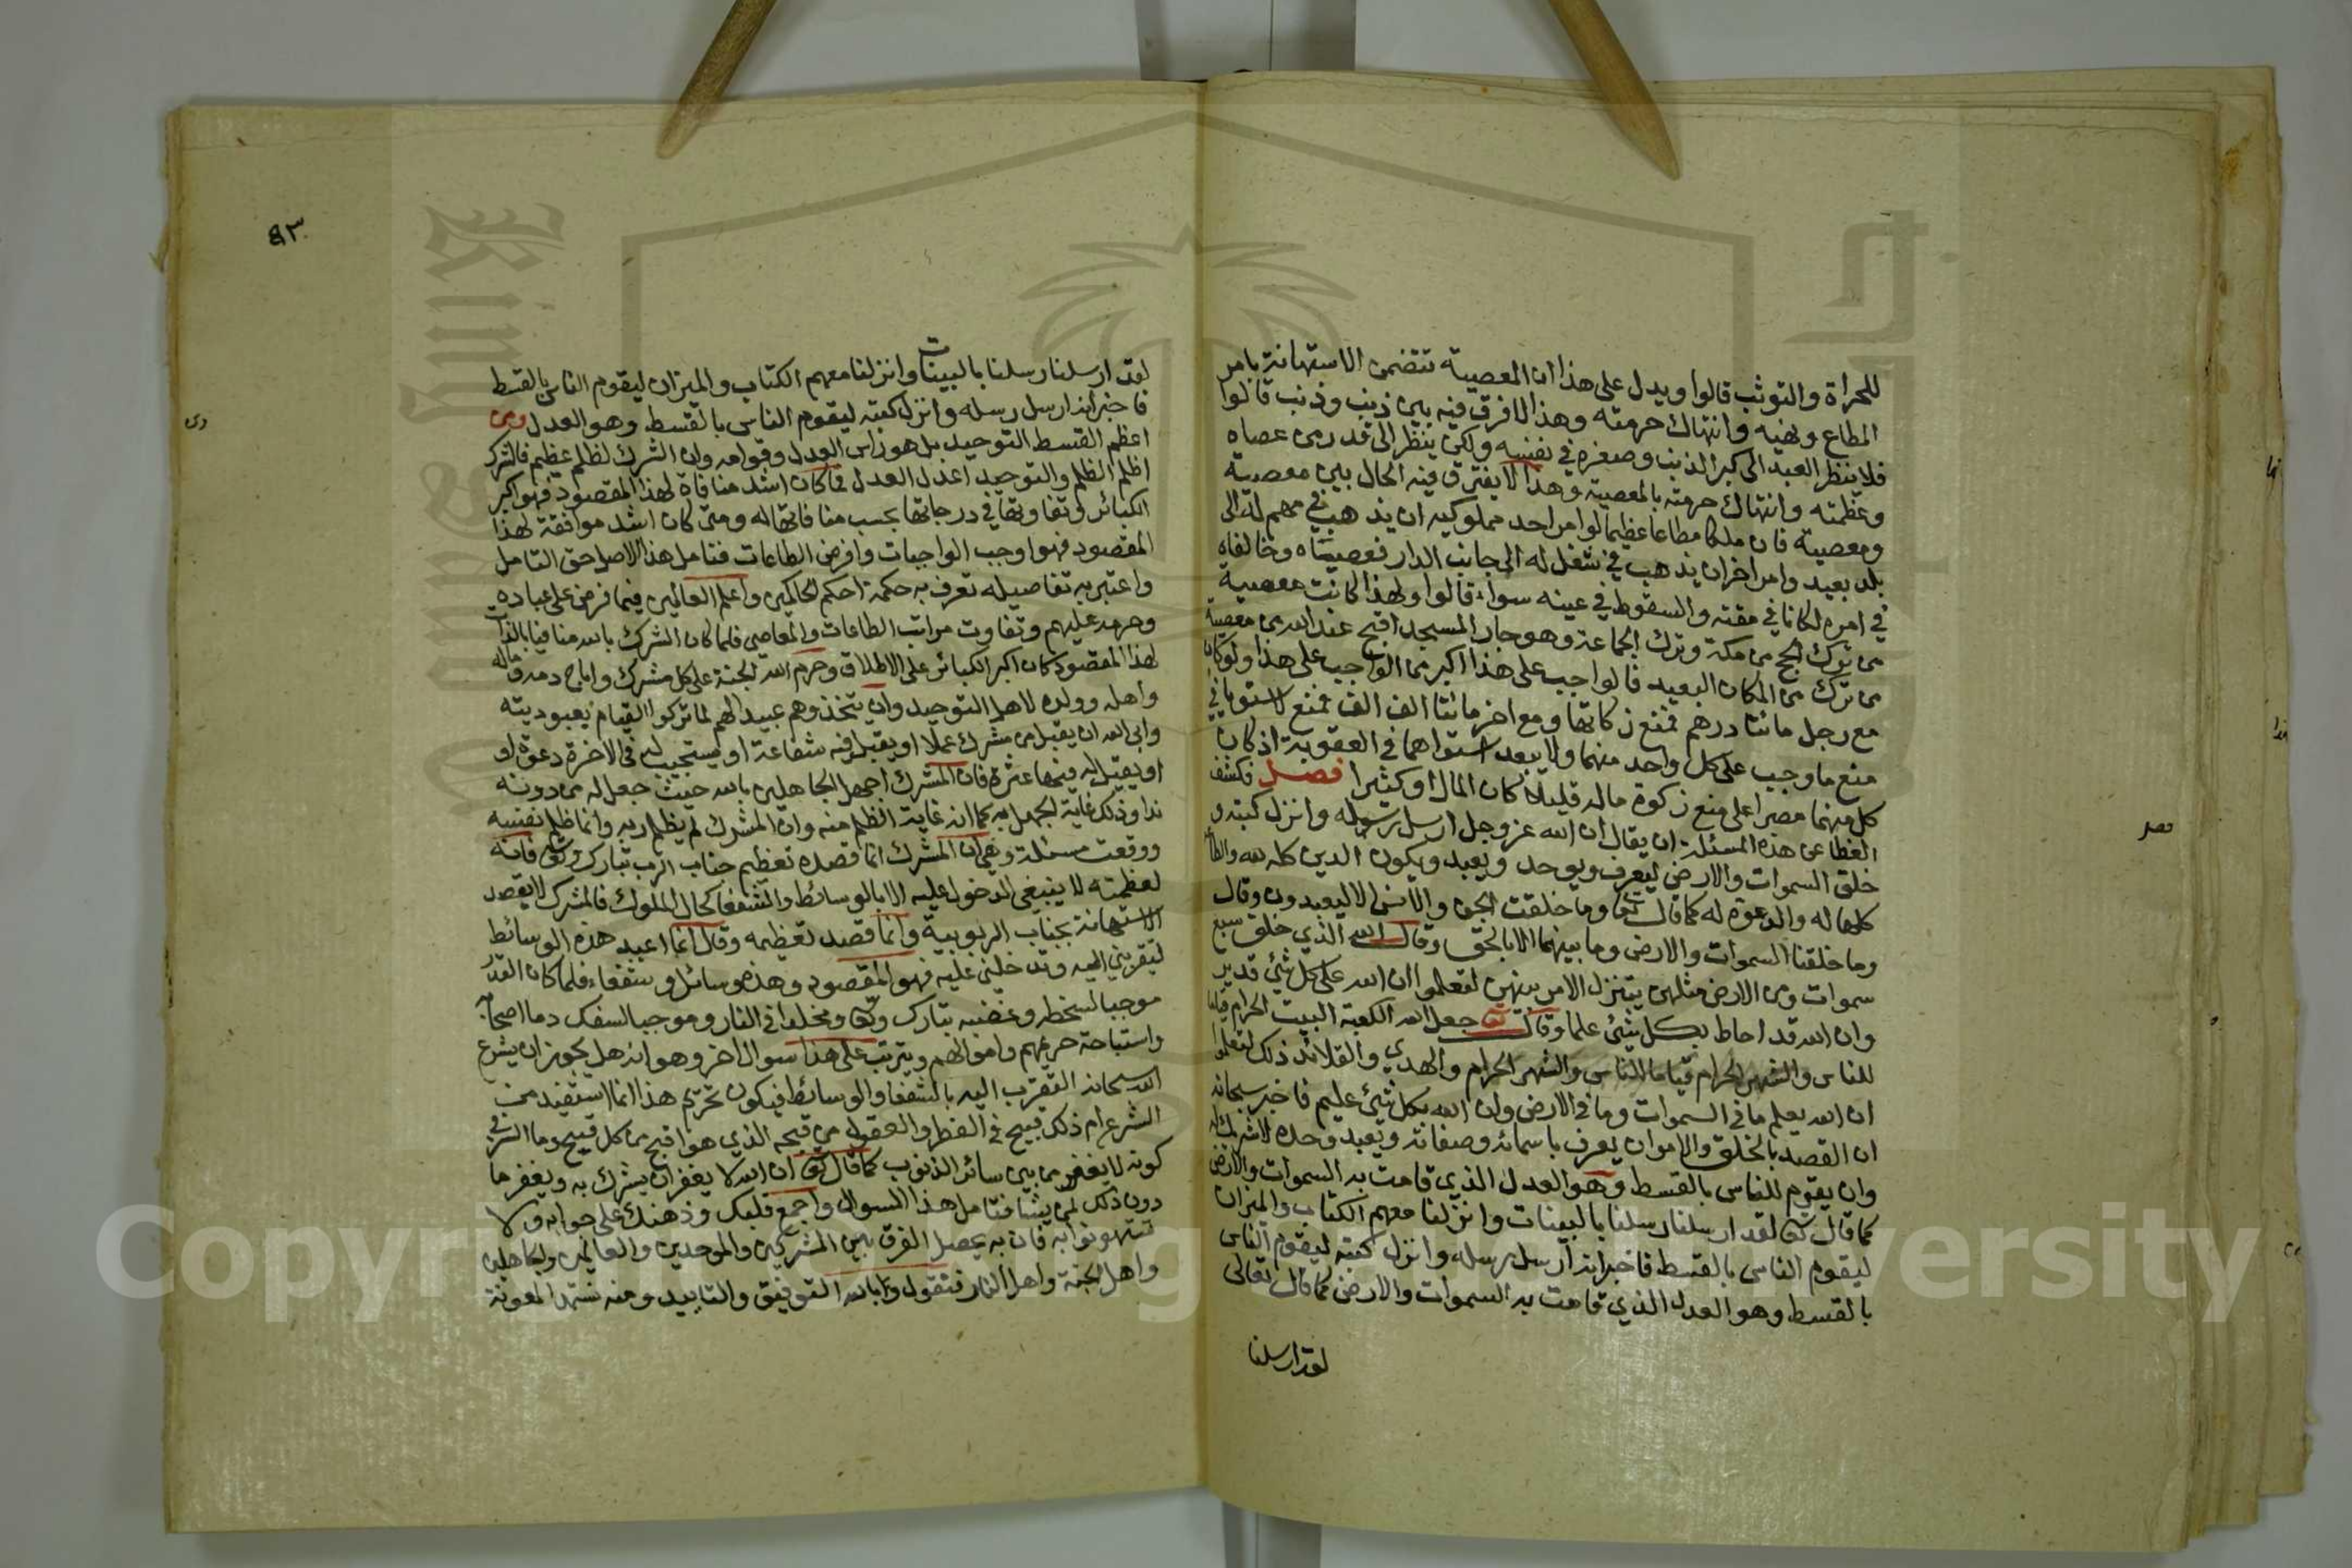 للجراة والتوثب قالوا ويدل على هذا ان المعصية تتضمن الاستهانة بامر
المطاع ونهيه وانتهاك حرمته وهذا لا فرق فيه بين ذنب وذنب قالوا
فلا ينظر العبد الى كبر الذنب وصغره في نفسه ولكن ينظر الى قدر من عصاه
وعظمته وانتهاك حرمته بالمعصية وهذا لا يفترق فيه الحال بين معصية
ومعصية فان ملكا مطاعا عظيما لو امر احد مملوكيه ان يذهب في مهم له الى
بلد بعيد وامر اخر ان يذهب في شغل له الى جانب الدار فعصياه وخالفاه
في امره لكانا في مقته والسقوط في عينه سواء قالوا ولهذا كانت معصية
من ترك الحج من مكة وترك الجماعة وهو جار المسجد اقبح عند الله من معصية
من ترك من المكان البعيد قالوا جب على هذا اكبر من الواجب على هذا ولو كان
مع رجل مائتا درهم فمنع زكاتها ومع اخر مائتا الف الف فمنع لاستويا في
منع ما وجب على كل واحد منهما ولا يبعد استواهما في العقوبة اذ كان
كل منهما مصرا على منع زكوة ماله قليلا كان المال او كثيرا فصل فكشف
الغطا عن هذه المسئلة ان يقال ان الله عز وجل ارسل رسوله وانزل كتبه و
خلق السموات والارض ليعرف ويوحد ويعبد ويكون الدين كله لله والطاعة
كلها له والدعوة له كما قال تع وما خلقت الجن والانس الا ليعبدون وقال
وما خلقنا السموات والارض وما بينهما الا بالحق وقال الله الذي خلق سبع
سموات ومن الارض مثلهن يتنزل الامر بينهن لتعلموا ان الله على كل شئ قدير
وان الله قد احاط بكل شئ علما وقال تع جعل الله الكعبة البيت الحرام قياما
للناس والشهر الحرام قياما للناس والشهر الحرام والهدي والقلائد ذلك لتعلموا
ان الله يعلم ما في السموات وما في الارض وان الله بكل شئ عليم فاخبر سبحانه
ان القصد بالخلق والامر ان يعرف باسمائه وصفاته ويعبد وحده لا شريك له
وان يقوم للناس بالقسط وهو العدل الذي قامت به السموات والارض
كما قال تع لقد ارسلنا رسلنا بالبينات وانزلنا معهم الكتاب والميزان
ليقوم الناس بالقسط فاخبر انه ارسل رسله وانزل كتبه ليقوم الناس
بالقسط وهو العدل الذي قامت به السموات والارض كما قال تعالى
لقد ارسلنا
فصل
٩٣
لقد ارسلنا رسلنا بالبينات وانزلنا معهم الكتاب والميزان ليقوم الناس بالقسط
فاخبر انه ارسل رسله وانزل كتبه ليقوم الناس بالقسط وهو العدل ومن
اعظم القسط التوحيد بل هو راس العدل وقوامه وان الشرك لظلم عظيم فالشرك
اظلم الظلم والتوحيد اعدل العدل فما كان اشد منافاة لهذا المقصود فهو اكبر
الكبائر وتفاوتها في درجاتها بحسب منافاتها له ومتى كان اشد موافقة لهذا
المقصود فهو اوجب الواجبات وافرض الطاعات فتامل هذا الاصل حق التامل
واعتبر به تفاصيله تعرف به حكمة احكم الحاكمين واعلم العالمين فيما فرض على عباده
وحرمه عليهم وتفاوت مراتب الطاعات والمعاصي فلما كان الشرك بالله منافيا بالذات
لهذا المقصود كان اكبر الكبائر على الاطلاق وحرم الله الجنة على كل مشرك واباح دمه وماله
واهله وولده لاهل التوحيد وان يتخذوهم عبيدا لهم لما تركوا القيام بعبوديته
وابى الله ان يقبل من مشرك عملا او يقبل فيه شفاعة او يستجيب له في الاخرة دعوة او
او يقيل له فيها عثرة فان المشرك اجهل الجاهلين بالله حيث جعل له من دونه
ندا وذلك غاية الجهل به كما انه غاية الظلم منه وان المشرك لم يظلم ربه وانما ظلم نفسه
ووقعت مسئلة وهي ان المشرك انما قصده تعظيم جناب الرب تبارك وتع فانه
لعظمته لا ينبغي الدخول عليه الا بالوسائط والشفعا كحال الملوك فالمشرك لا يقصد
الاستهانة بجناب الربوبية وانما قصد تعظيمه وقال انما اعبد هذه الوسائط
لتقربني اليه وتدخلني عليه فهو المقصود وهذه وسائل وشفعاء فلما كان القدر
موجبا لسخطه وغضبه تبارك وتع ومخلدا في النار وموجبا لسفك دما اصحابه
واستباحة حريمهم واموالهم ويترتب على هذا سوال اخر وهو انه هل يجوز ان يشرع
الله سبحانه التقرب اليه بالشفعا والوسائط فيكون تحريم هذا انما استفيد من
الشرع ام ذلك قبيح في الفطر والعقول من قبحه الذي هو اقبح من كل قبيح وما السر في
كونه لا يغفر من بين سائر الذنوب كما قال تع ان الله لا يغفر ان يشرك به ويغفر ما
دون ذلك لمن يشا فتامل هذا السوال واجمع قلبك وذهنك على جوابه ولا
تتهونوا به فان به يحصل الفرق بين المشركين والموحدين والعالمين والجاهلين
واهل الجنة واهل النار فنقول وبالله التوفيق والتاييد ومنه نستمد المعونة
Copyright © King Saud University